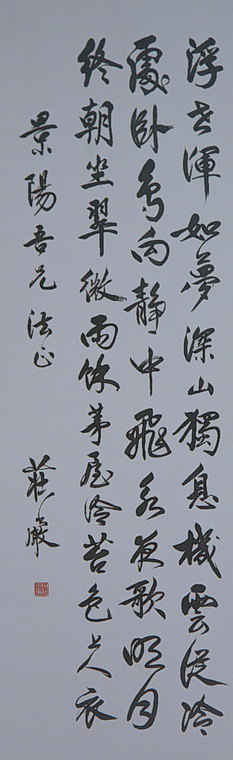 浮世渾如夢深山獨息機雲從冷
處臥鳥向靜中飛永夜歌明月
終朝坐翠微雨餘茅屋冷苔色上人衣
景陽吾兄法正
莊嚴